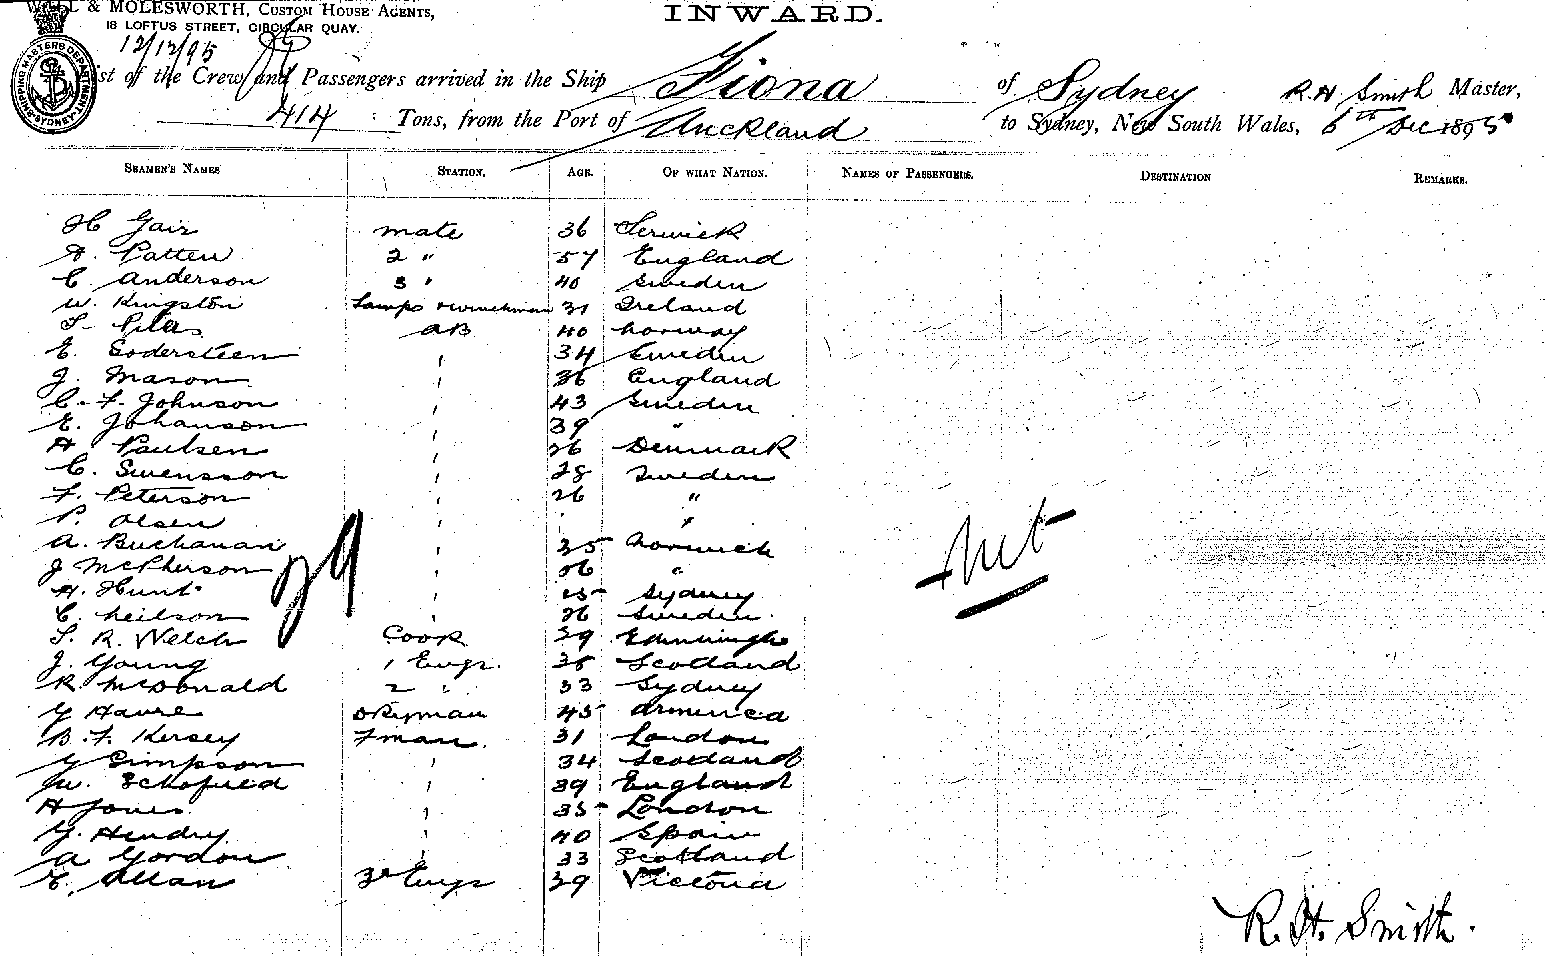 WALL & MOLESWORTH, CUSTOM HOUSE AGENTS,
18 LOFTUS STREET, CIRCULAR QUAY.
INWARD.
12/12/95
SHIPPING MASTERS DEPARTMENT SYDNEY
List of the Crew and Passengers arrived in the Ship Fiona of Sydney R H Smith Master,
414 Tons, from the Port of Auckland to Sydney, New South Wales, 6th Dec 1895
SEAMEN'S NAMES STATION. AGE. OF WHAT NATION. NAMES OF PASSENGERS. DESTINATION REMARKS.
H Gair mate 36 Lerwick
A. Patten 2 " 57 England
C Anderson 3 " 40 Sweden
W. Kingston Lamps & winchman 31 Ireland
AB 40 Norway
E. Sodersteen ' 34 Sweden
J. Mason ' 36 England
C. F. Johnson ' 43 Sweden
E. Johanson ' 39 "
A Paulsen ' 26 Denmark
C. Swensson ' 28 Sweden
F. Peterson ' 26 "
P. Olsen ' "
A. Buchanan ' 35
J McPherson ' 26 "
H. Hunt ' Sydney
C. Neilson ' 26 Sweden
S. R. Welch Cook 39
J. Young 1 Engr. 38 Scotland
R. McDonald 2 " 33 Sydney
G 45
B. F. Kersey Fman. 31 London
G Simpson ' 34 Scotland
W. Schofield ' 39 England
A Jones ' 35 London
G. Hendry ' 40 Spain
A Gordon ' 33 Scotland
E. Allan 3rd Engr 29 Victoria
29
R. H. Smith.